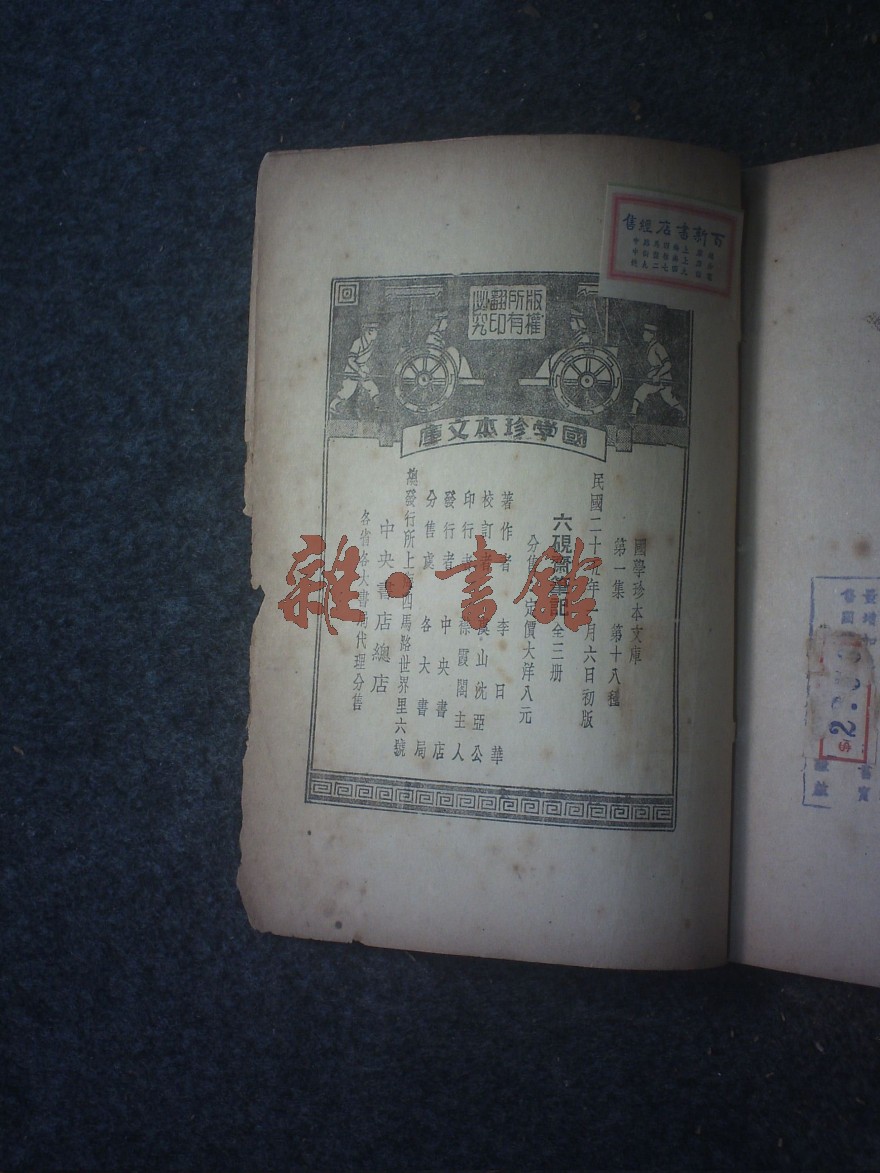 百新書店經售
版權
所有
翻印
必究
國學珍本文庫
國學珍本文庫
第一集 第十八種
民國二十五年一月六日初版
六硯齋筆記 全三册
分售 定價大洋八元
著作者 李日華
校訂者 山沈亞公
印行者 霞閣主人
發行者 中央書店
分售處 各大書局
總發行所上海四馬路世界里六號
中央書店總店
各省各大書局代理分售
雜·書館